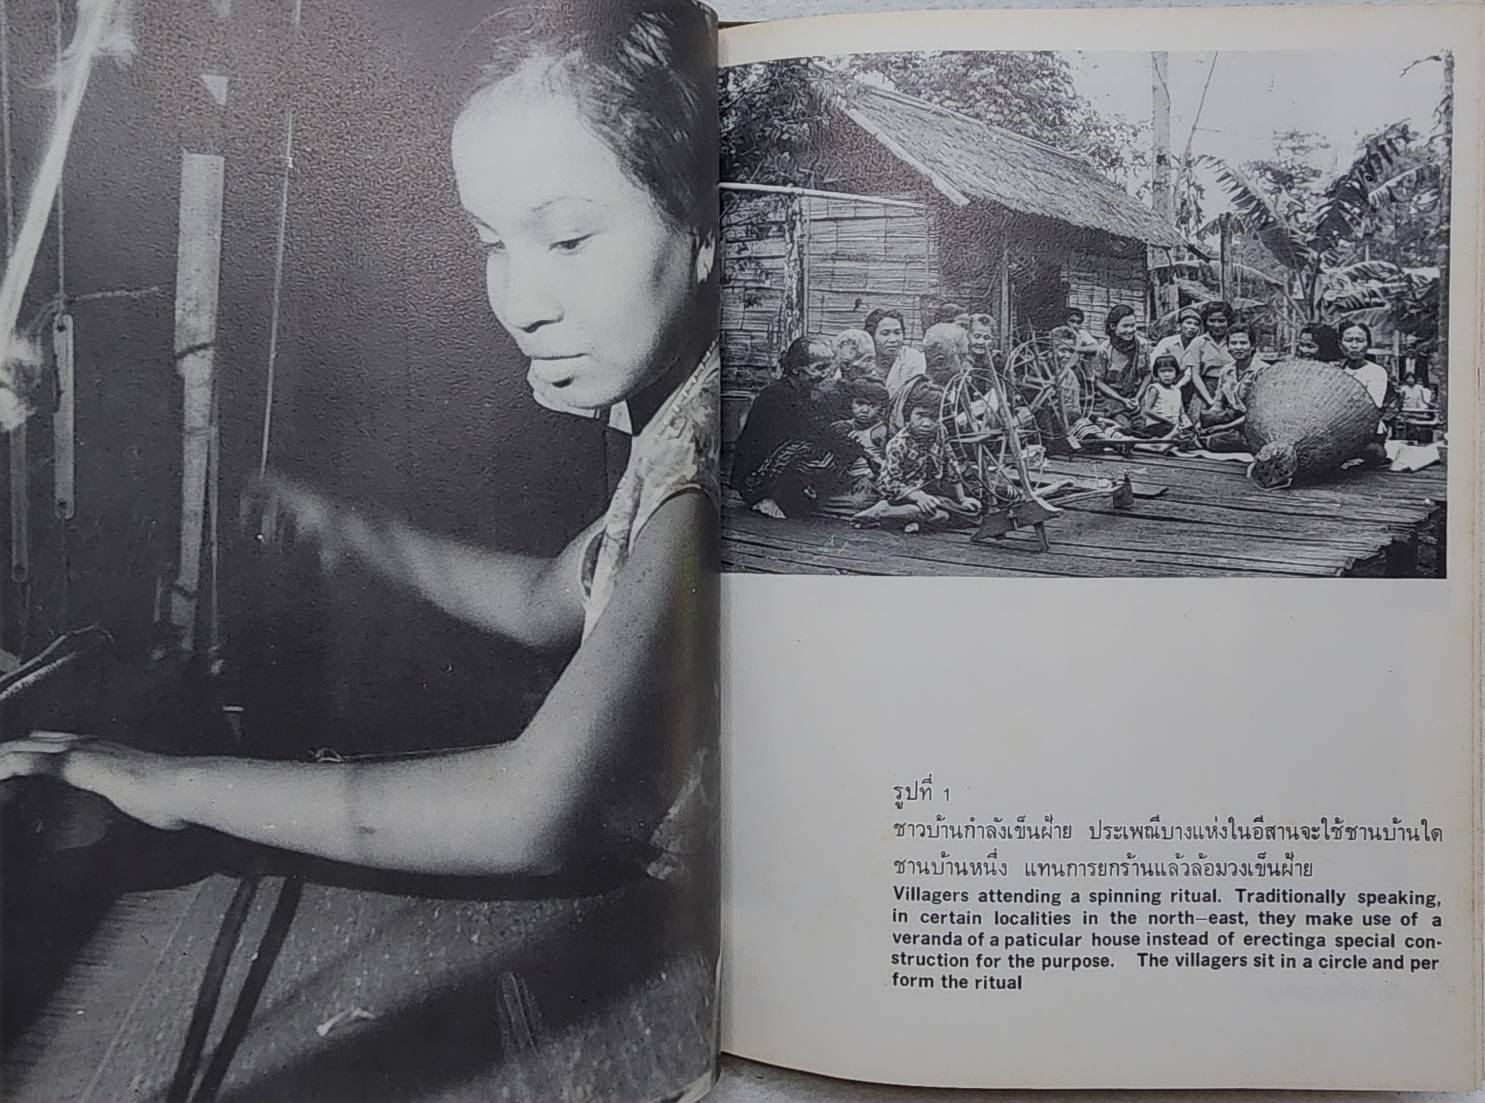 รูปที่ 1
ชาวบ้านกำลังเข็นฝ้าย ประเพณีบางแห่งในอีสานจะใช้ชานบ้านใด
ชานบ้านหนึ่ง แทนการยกร้านแล้วล้อมวงเข็นฝ้าย
Villagers attending a spinning ritual. Traditionally speaking,
in certain localities in the north-east, they make use of a
veranda of a paticular house instead of erectinga special con-
struction for the purpose. The villagers sit in a circle and per
form the ritual